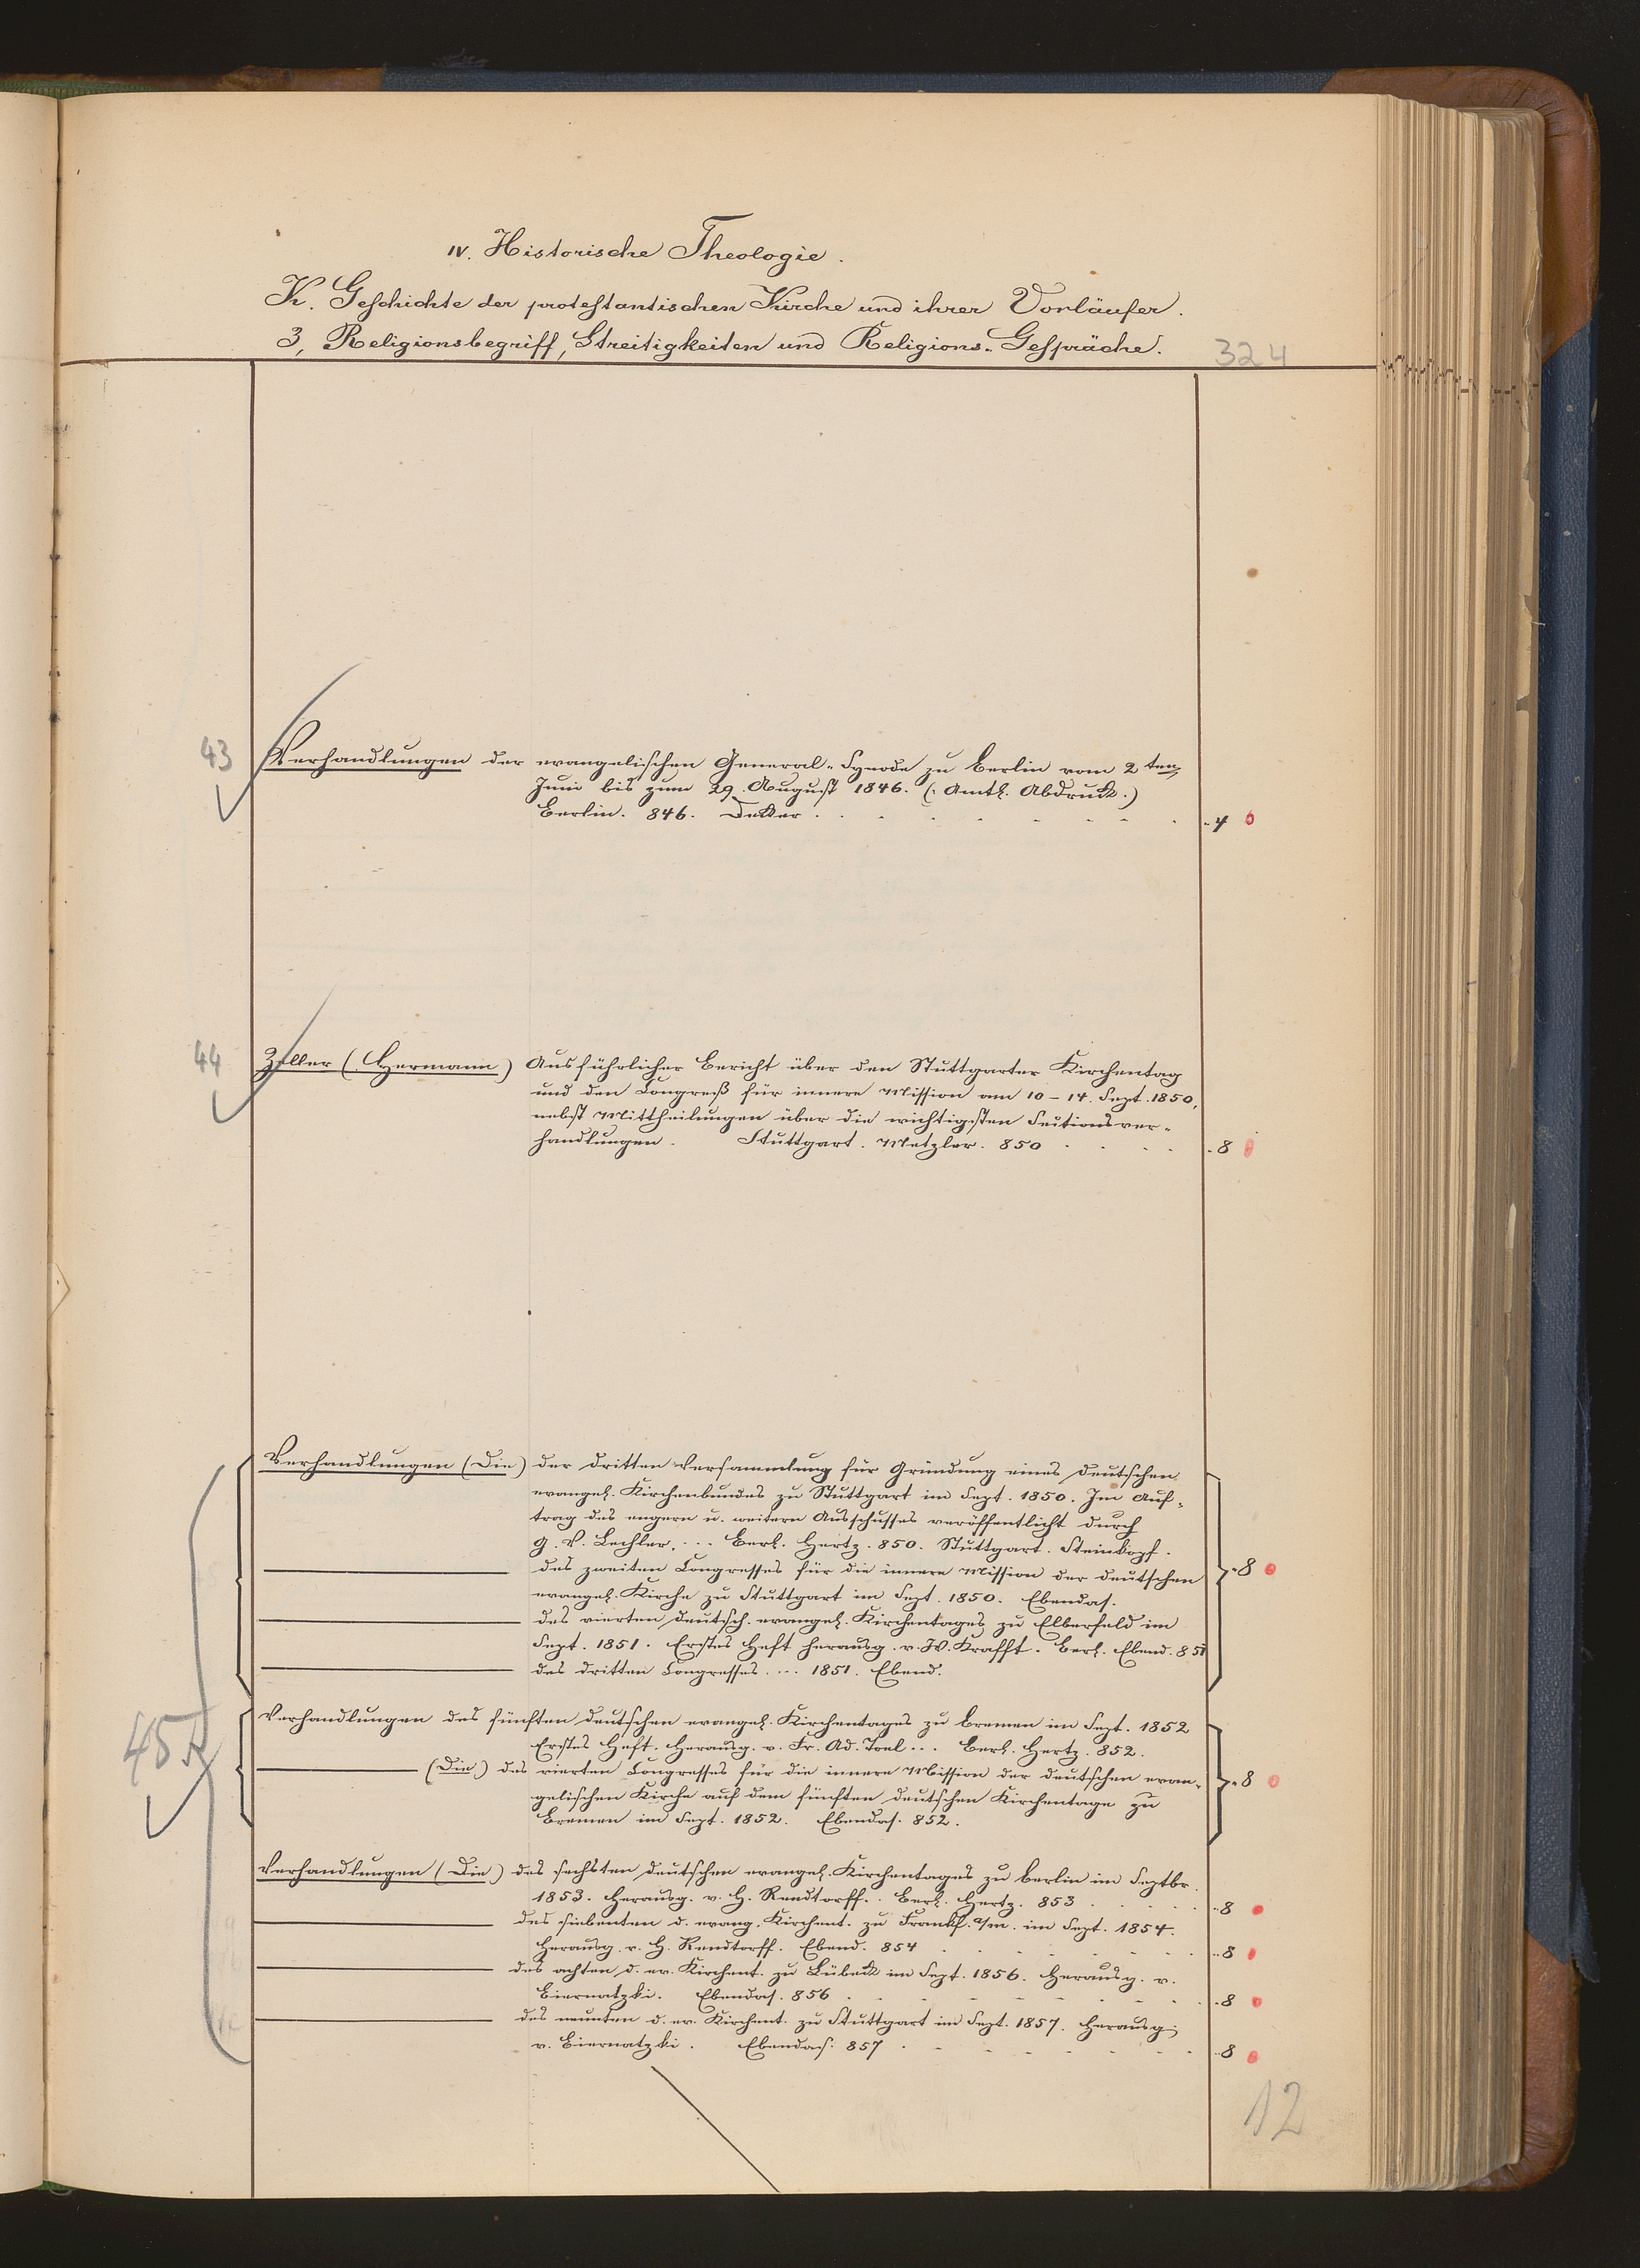 IV. Historische Theologie.
K. Geschichte der protestantischen Kirche und ihrer Vorläufer.
3, Religionsbegriff, Streitigkeiten und Religions-Gespräche.
324
43
Verhandlungen der evangelischen General-Synode zu Berlin vom 2ten
Juni bis zum 29. August 1846. (: Amtl. Abdruck.)
Berlin. 846. Decker . . . . . . . . . 4
44
Zeller (Hermann) Ausführlicher Bericht über den Stuttgarter Kirchentag
und den Congreß für innere Mission am 10-14. Sept. 1850,
nebst Mittheilungen über die wichtigsten Seitionsver-
handlungen. Stuttgart. Metzler. 850 . . . . 8
Verhandlungen (Die) der dritten Versammlung für Gründung eines deutschen
evangel. Kirchenbundes zu Stuttgart im Sept. 1850. Im Auf-
trag des engern u. weitern Ausschusses veröffentlicht durch
G. V. Lechler, ... Berl. Hertz. 850. Stuttgart. Steinkopf.
des zweiten Congresses für die innere Mission der deutschen
evangel. Kirche zu Stuttgart im Sept. 1850. Ebendas.
8
des vierten deutsch. evangel. Kirchentages zu Elberfeld im
Sept. 1851. Erstes Heft herausg. v. W. Krafft. Berl. Ebend. 851
des dritten Congresses .... 1851. Ebend.
45
Verhandlungen des fünften deutschen evangel. Kirchentages zu Bremen im Sept. 1852
Erstes Heft. Herausg. v. Fr. Ad. Toel ... Berl. Hertz. 852.
(Die) des vierten Congresses für die innere Mission der deutschen evan-
gelischen Kirche auf dem fünften deutschen Kirchentage zu
Bremen im Sept. 1852. Ebendas. 852.
8
Verhandlungen (Die) des sechsten deutschen evangel. Kirchentages zu Berlin im Septbr.
1853. Herausg. v. H. Rendtorff. Berl. Hertz. 853 . . . . 8
des siebenten d. evang. Kirchent. zu Frankf. a/m. im Sept. 1854.
Herausg. v. H. Rendtorff. Ebend. 854 . . . . . . . 8
des achten d. ev. Kirchent. zu Lübeck im Sept. 1856. Herausg. v.
Biernatzki. Ebendas. 856 . . . . . . . . 8
des neunten d. ev. Kirchent. zu Stuttgart im Sept. 1857. Herausg.
v. Biernatzki. Ebendas. 857 . . . . . . . . 8
12